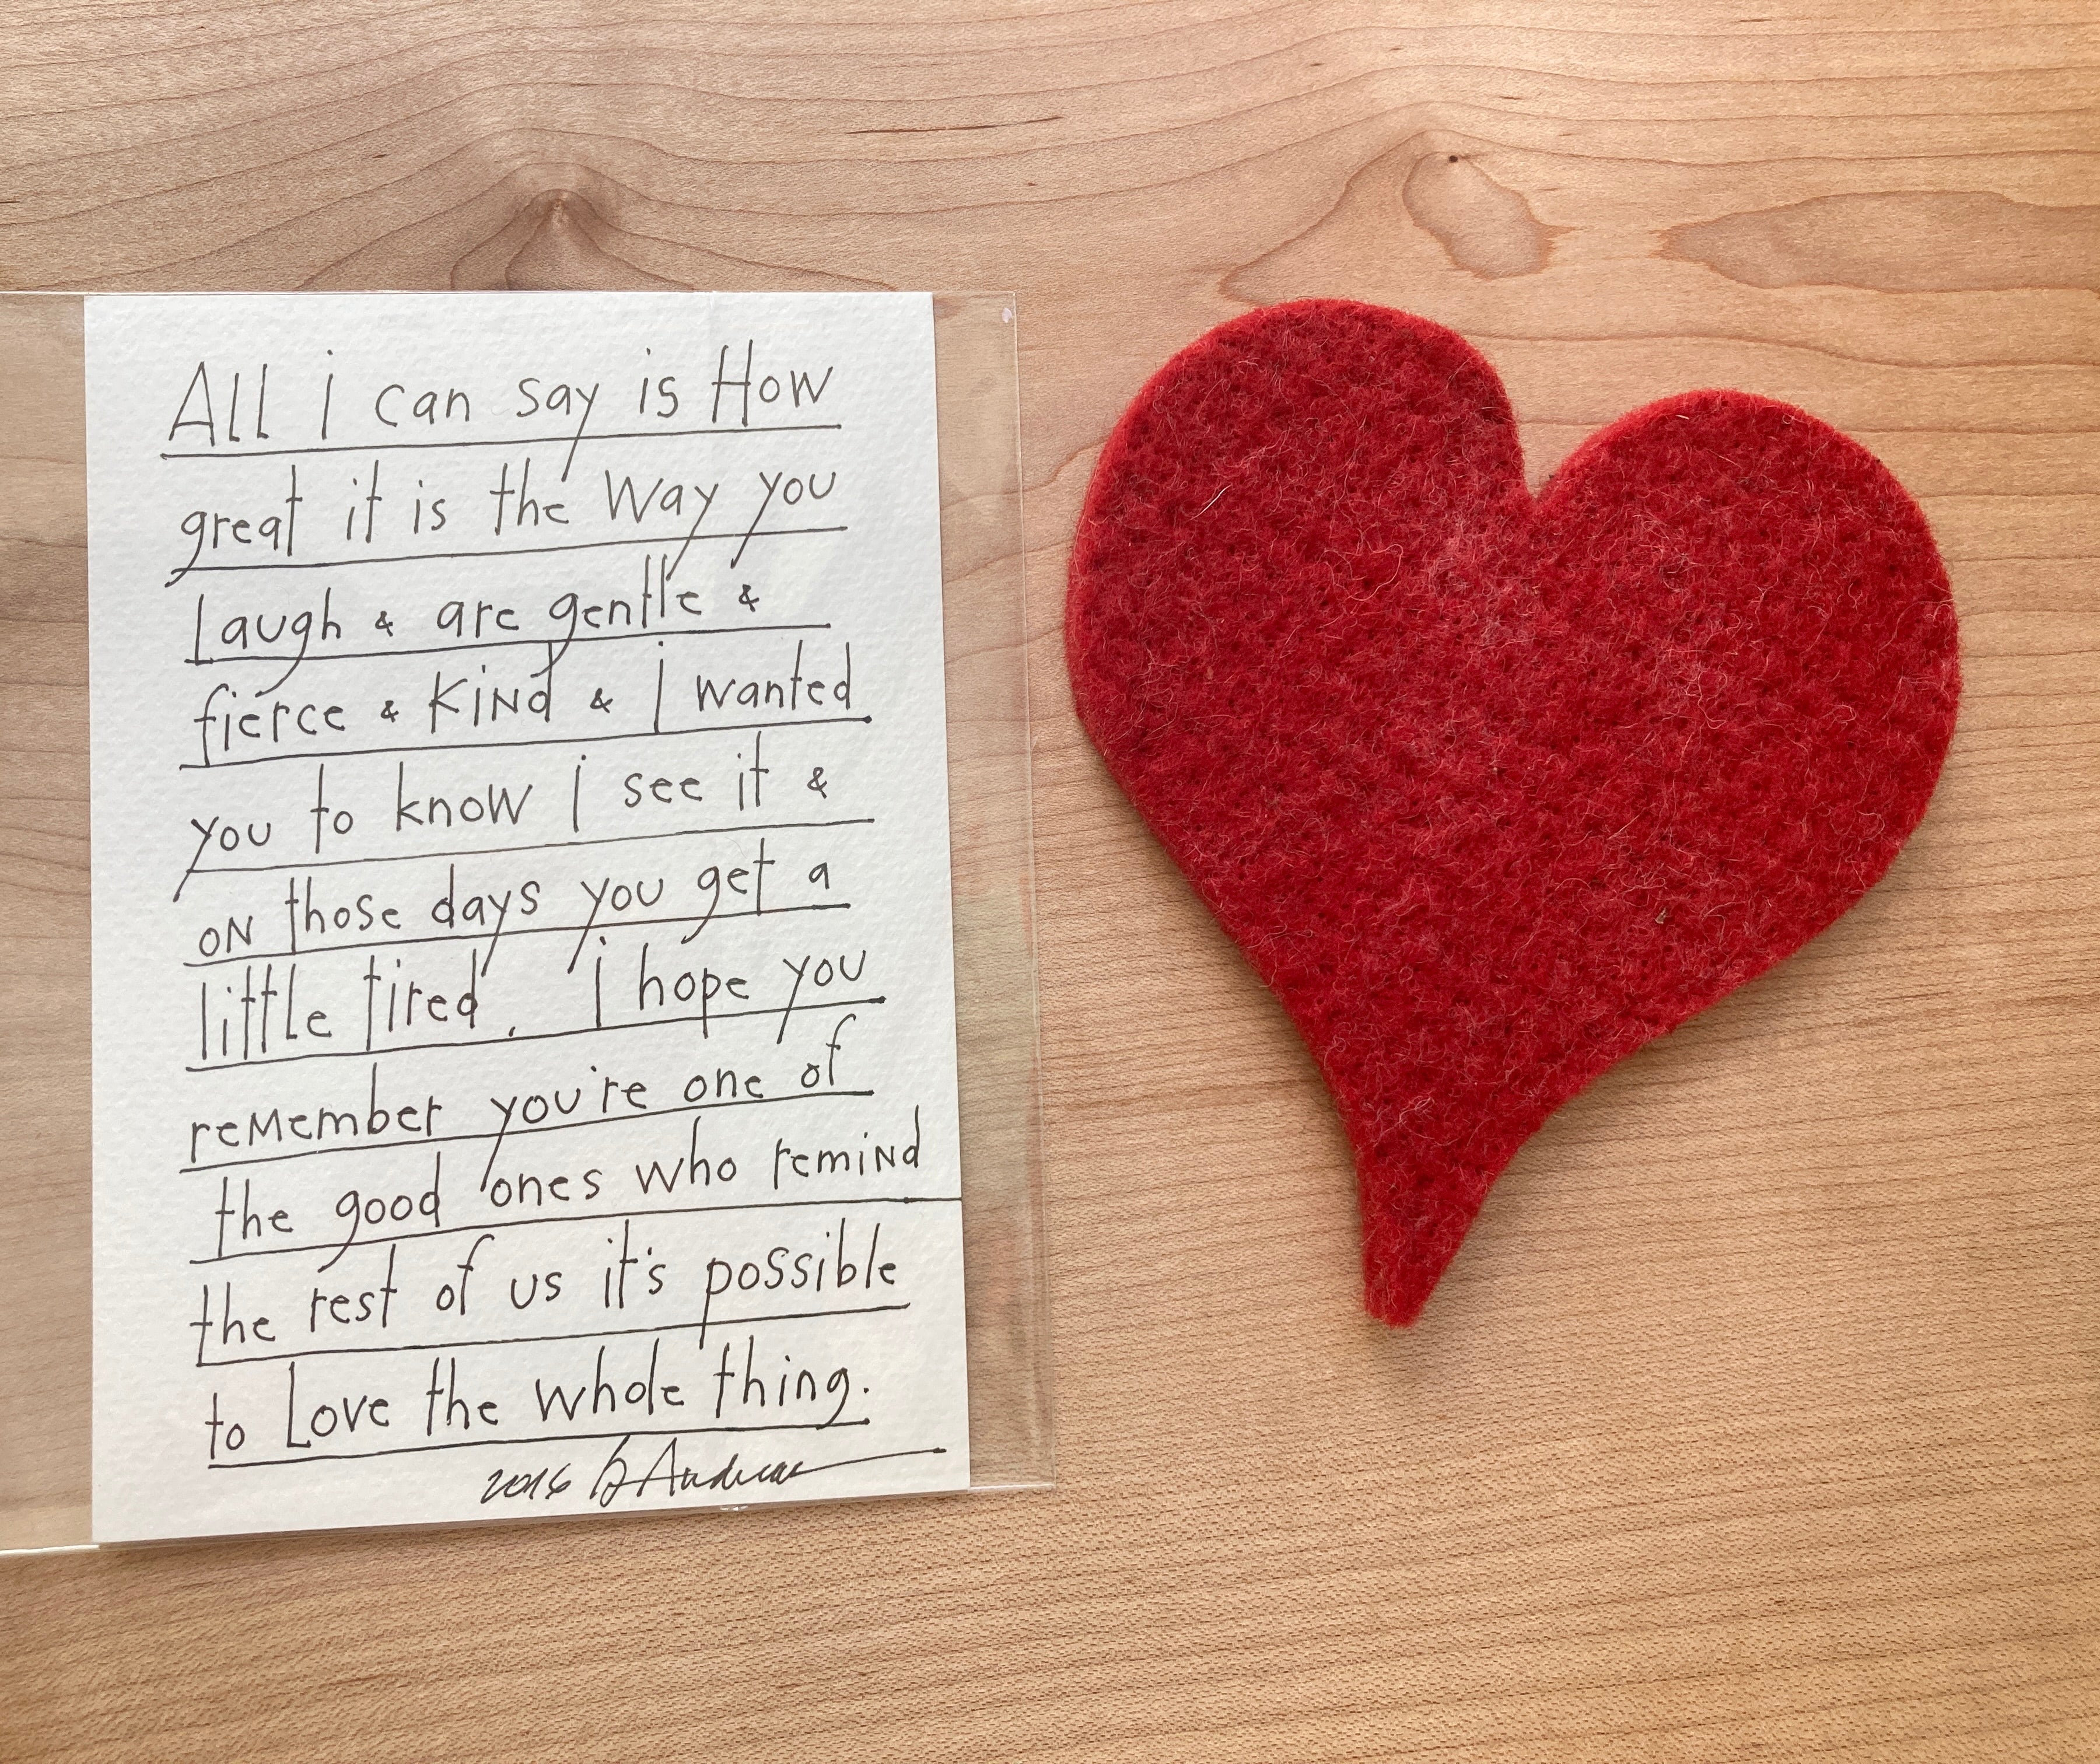 All i can say is How
great it is the Way you
Laugh & are gentle &
fierce & KiNd & i wanted
you to know i see it &
oN those days you get a
little tired, i hope you
reMember you're one of
the good ones who remiNd
the rest of us it's possible
to Love the whole thing.
2016 Andreas